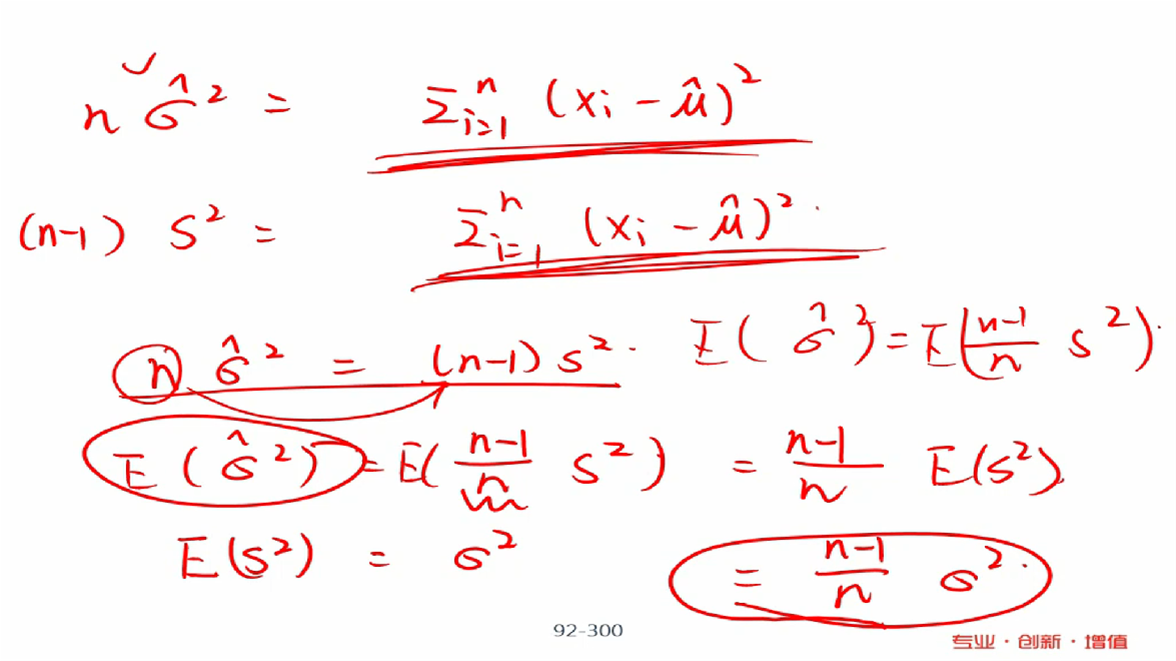 n σ̂² = Σᵢ₌₁ⁿ (xᵢ - μ̂)²
(n-1) S² = Σᵢ₌₁ⁿ (xᵢ - μ̂)².
n σ̂² = (n-1) S².
E( σ̂²) = E(n-1/n S²).
E ( σ̂²) = E( n-1/n S²) = n-1/n E(S²).
E(S²) = σ²
= n-1/n σ².
92-300
专业·创新·增值